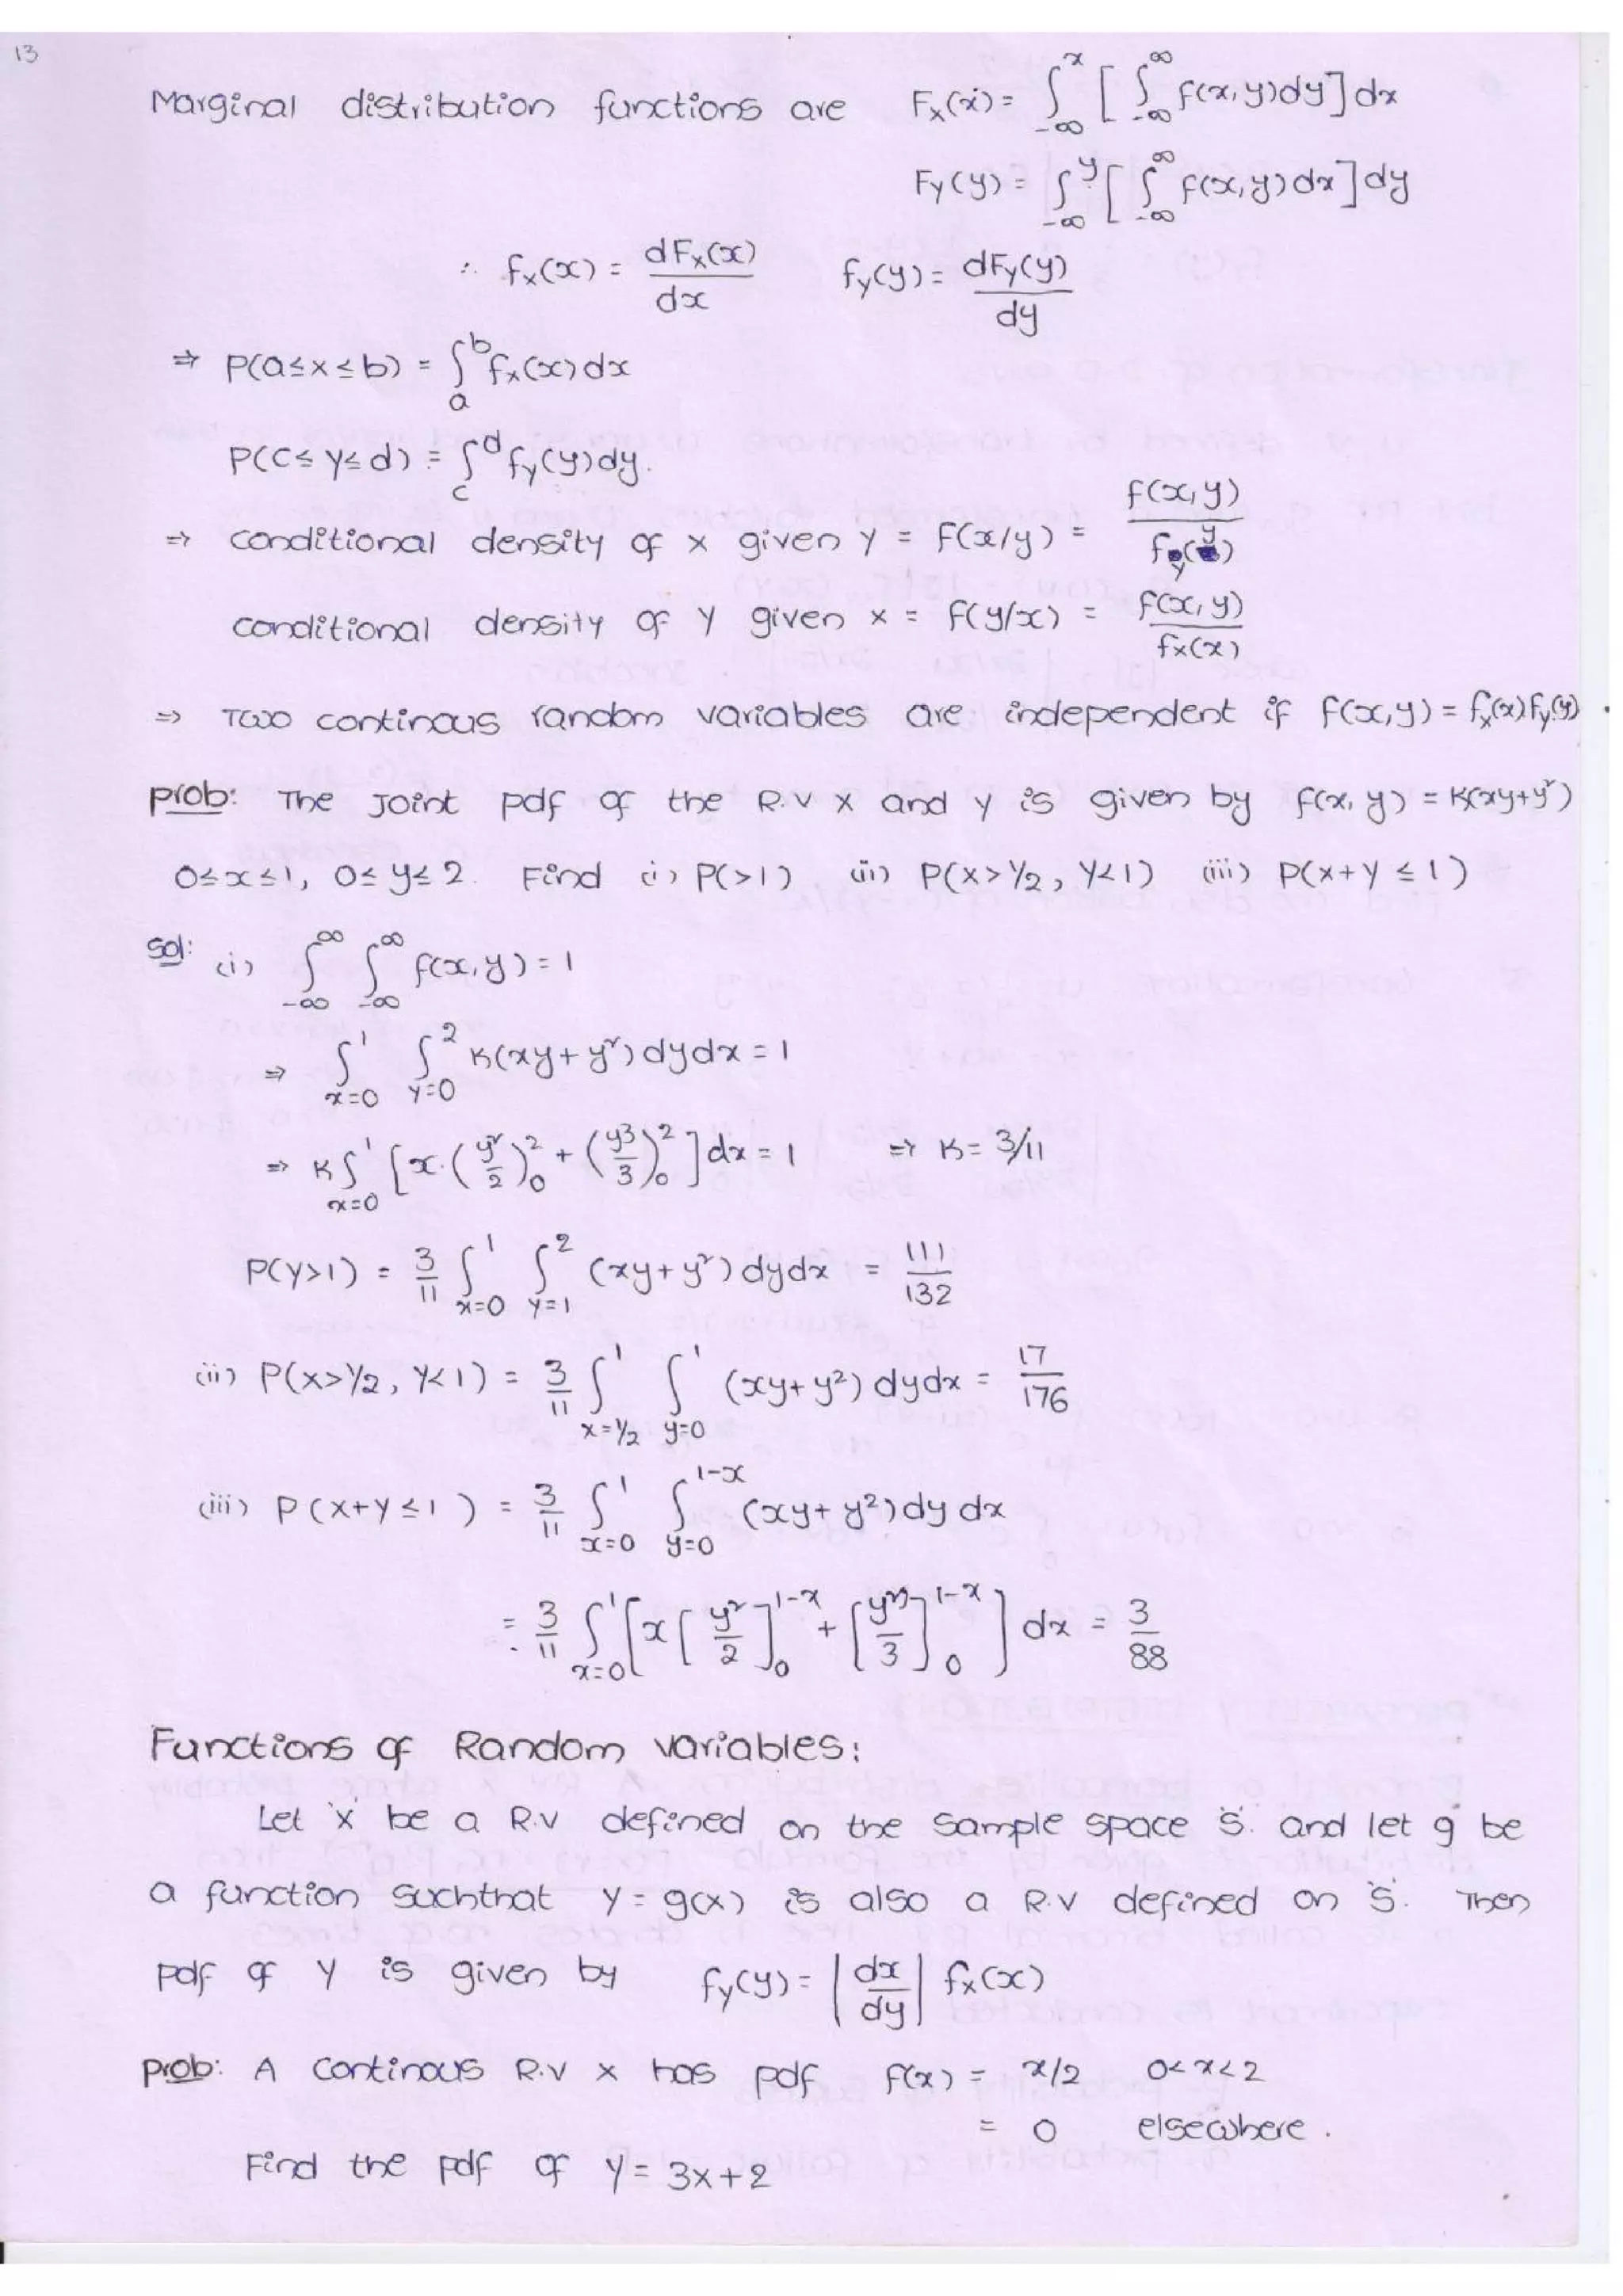 13
Marginal distribution functions are F_X(x) = ∫_{-∞}^{x} [ ∫_{-∞}^{∞} f(x,y)dy] dx
F_Y(y) = ∫_{-∞}^{y} [ ∫_{-∞}^{∞} f(x,y) dx] dy
∴ f_X(x) = dF_X(x)/dx f_Y(y) = dF_Y(y)/dy
⇒ P(a≤x≤b) = ∫_a^b f_X(x) dx
P(c≤y≤d) = ∫_c^d f_Y(y) dy.
⇒ conditional density of X given Y = f(x/y) = f(x,y)/f_Y(y)
conditional density of Y given X = f(y/x) = f(x,y)/f_X(x)
⇒ Two continous random variables are independent if f(x,y) = f_X(x) f_Y(y).
prob: The Joint pdf of the R.V X and Y is given by f(x,y) = K(xy+y²)
0≤x≤1, 0≤y≤2. Find (i) P(>1) (ii) P(X>1/2, Y<1) (iii) P(X+Y ≤ 1)
Sol: (i) ∫_{-∞}^{∞} ∫_{-∞}^{∞} f(x,y) = 1
⇒ ∫_{x=0}^{1} ∫_{y=0}^{2} K(xy+y²) dydx = 1
⇒ K∫_{x=0}^{1} [x.(y²/2)_0^2 + (y³/3)_0^2] dx = 1 ⇒ K = 3/11
P(Y>1) = 3/11 ∫_{x=0}^{1} ∫_{y=1}^{2} (xy+y²) dydx = 111/132
(ii) P(X>1/2, Y<1) = 3/11 ∫_{x=1/2}^{1} ∫_{y=0}^{1} (xy+y²) dydx = 17/176
(iii) P(X+Y≤1) = 3/11 ∫_{x=0}^{1} ∫_{y=0}^{1-x} (xy+y²) dy dx
= 3/11 ∫_{x=0}^{1} [x[y²/2]_0^{1-x} + [y³/3]_0^{1-x}] dx = 3/88
Functions of Random variables:
Let 'X' be a R.V defined on the sample space 'S'. and let g be
a function suchthat Y = g(x) is also a R.V defined on 'S'. Then
pdf of Y is given by f_Y(y) = |dx/dy| f_X(x)
prob: A continous R.V X has pdf f(x) = x/2 0<x<2
= 0 elsewhere.
Find the pdf of Y = 3x+2